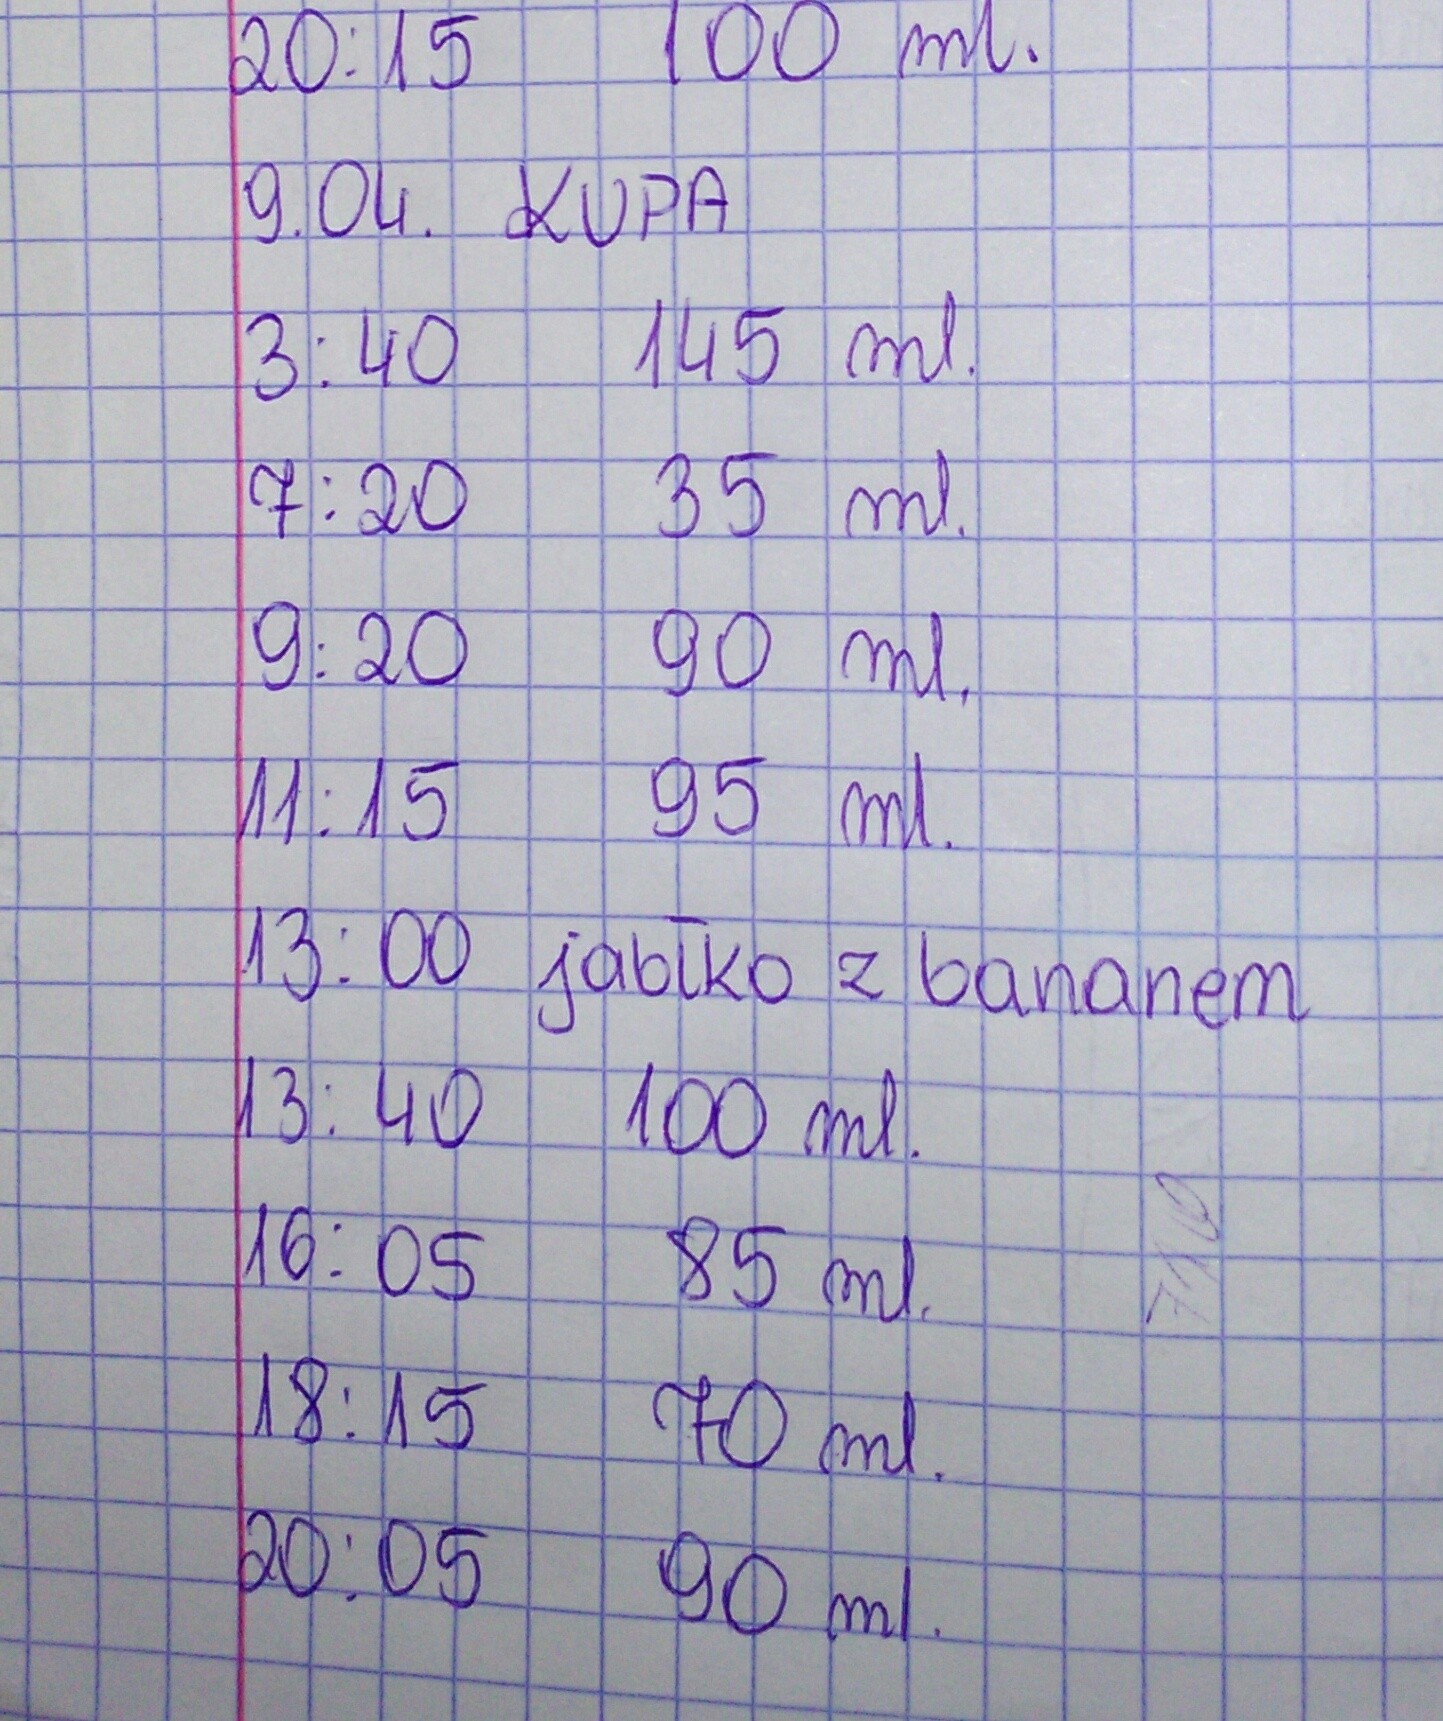 20:15 100 ml.
9.04. KUPA
3:40 145 ml.
7:20 35 ml.
9:20 90 ml.
11:15 95 ml.
13:00 jabłko z bananem
13:40 100 ml.
16:05 85 ml.
18:15 70 ml.
20:05 90 ml.
710